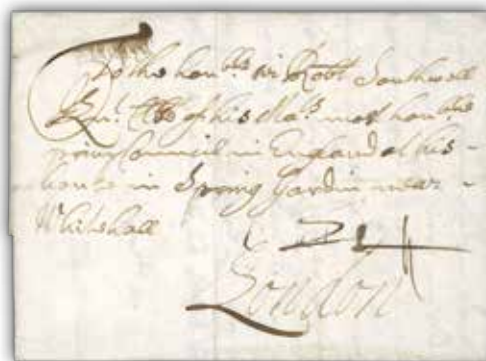 To the honble Sr Robt Southwell
Knt. Clk of his Mats most honble
privy Councill in England at his
house in Spring Gardin near
Whitehall
London